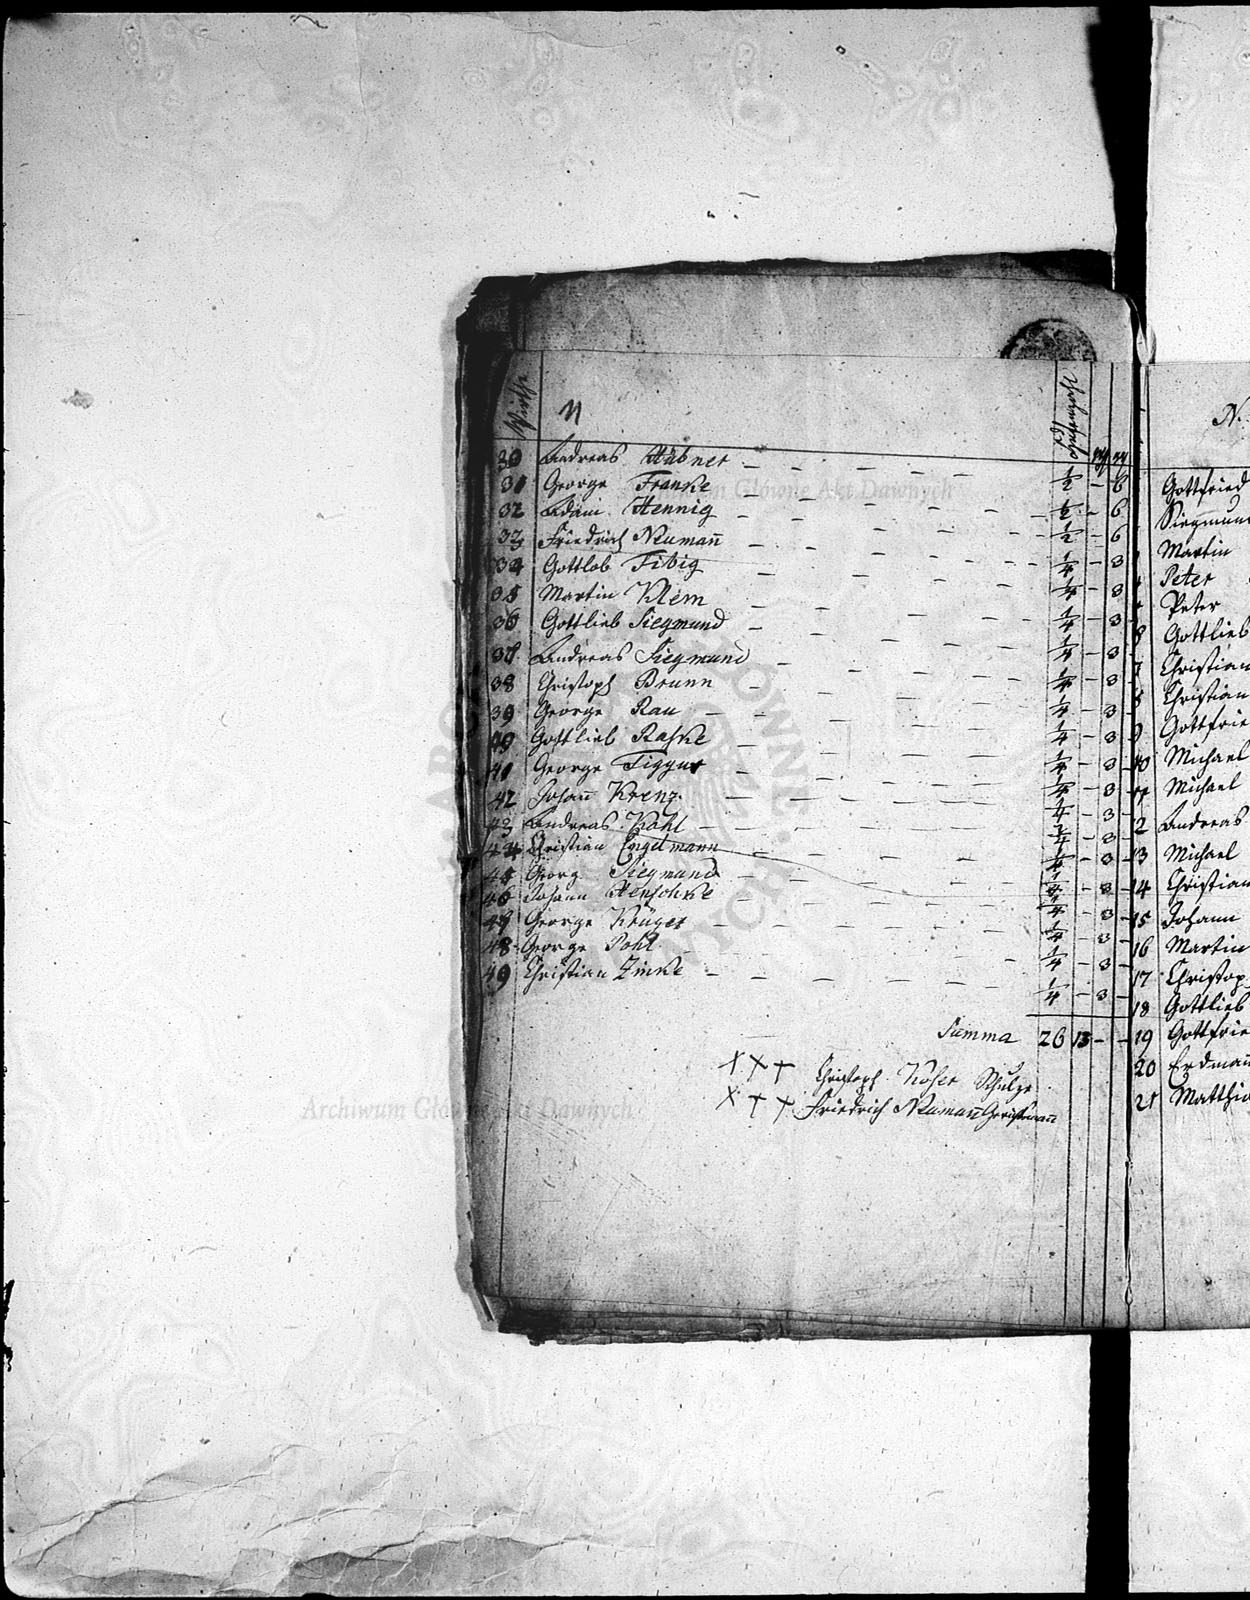 Wirthe
N
30 Andreas Hübner — — — — — ½ — 6
31 George Franke — — — — ½ — 6
32 Adam Hennig — — — — ½ — 6
33 Friedrich Neuman̄ — — — — ¼ — 3
34 Gottlob Fibig — — — — ¼ — 3
35 Martin Klem — — — — ¼ — 3
36 Gottlieb Siegmund — — — — ¼ — 3
37 Andreas Siegmund — — — — ¼ — 3
38 Christoph Brunn — — — — ¼ — 3
39 George Rau — — — — ¼ — 3
40 Gottlieb Raske — — — — ¼ — 3
41 George — — — — ¼ — 3
42 Johan̄ Krenz — — — — ¼ — 3
43 Andreas Kohl — — — — ¼ — 3
44 Christian Engelmann — — — — ¼ — 3
45 Georg Siegmund — — — — ¼ — 3
46 Johann Henschke — — — — ¼ — 3
47 George Krüger — — — — ¼ — 3
48 George Pohl — — — — ¼ — 3
49 Christian Zinke — — — — ¼ — 3
Summa 26 13 — —
XXX Christoph Koser Schulze
X++ Friedrich Neuman̄ Gerichtsman̄
N.
Gottfried
Siegmund
Martin
Peter
Peter
Gottlieb
7 Christian
8 Christian
9 Gottfrie
10 Michael
11 Michael
12 Andreas
13 Michael
14 Christian
15 Johann
16 Martin
17 Christop
18 Gottlieb
19 Gottfrie
20 Erdman̄
21 Matthia
Archiwum Główne Akt Dawnych
Archiwum Główne Akt Dawnych